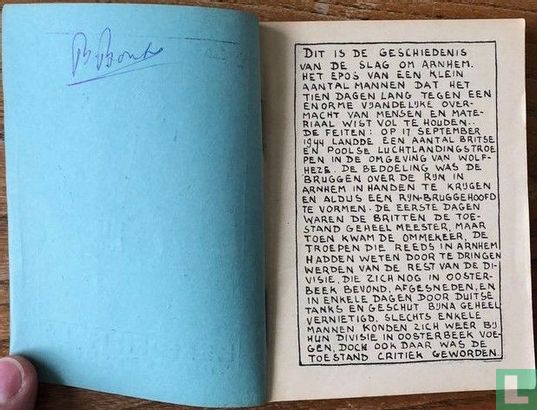 DIT IS DE GESCHIEDENIS
VAN DE SLAG OM ARNHEM.
HET EPOS VAN EEN KLEIN
AANTAL MANNEN DAT HET
TIEN DAGEN LANG TEGEN EEN
ENORME VIJANDELIJKE OVER-
MACHT VAN MENSEN EN MATE-
RIAAL WIST VOL TE HOUDEN..
DE FEITEN: OP 17 SEPTEMBER
1944 LANDDE EEN AANTAL BRITSE
EN POOLSE LUCHTLANDINGSTROE
PEN IN DE OMGEVING VAN WOLF-
HEZE. DE BEDOELING WAS DE
BRUGGEN OVER DE RIJN IN
ARNHEM IN HANDEN TE KRIJGEN
EN ALDUS EEN RIJN-BRUGGEHOOFD
TE VORMEN. DE EERSTE DAGEN
WAREN DE BRITTEN DE TOE-
STAND GEHEEL MEESTER, MAAR
TOEN KWAM DE OMMEKEER, DE
TROEPEN DIE REEDS IN ARNHEM
HADDEN WETEN DOOR TE DRINGEN
WERDEN VAN DE REST VAN DE DI-
VISIE, DIE ZICH NOG IN OOSTER-
BEEK BEVOND, AFGESNEDEN, EN
IN ENKELE DAGEN DOOR DUITSE
TANKS EN GESCHUT BIJNA GEHEEL
VERNIETIGD. SLECHTS ENKELE
MANNEN KONDEN ZICH WEER BIJ
HUN DIVISIE IN OOSTERBEEK VOE-
GEN, DOCH OOK DAAR WAS DE
TOESTAND CRITIEK GEWORDEN.
catawiki